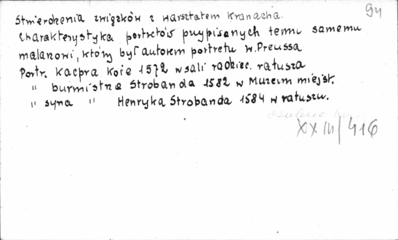 94
Stwierdzenia związków z warsztatem Kranacha.
Charakterystyka portretów przypisanych temu samemu
malarzowi, który był autorem portretu w. Preussa
Portr. Kacpra Koye 1572 w sali radziec. ratusza
" burmistrza Strobanda 1582 w Muzeum miejsk.
" syna " Henryka Strobanda 1584 w ratuszu.
XXIII/416